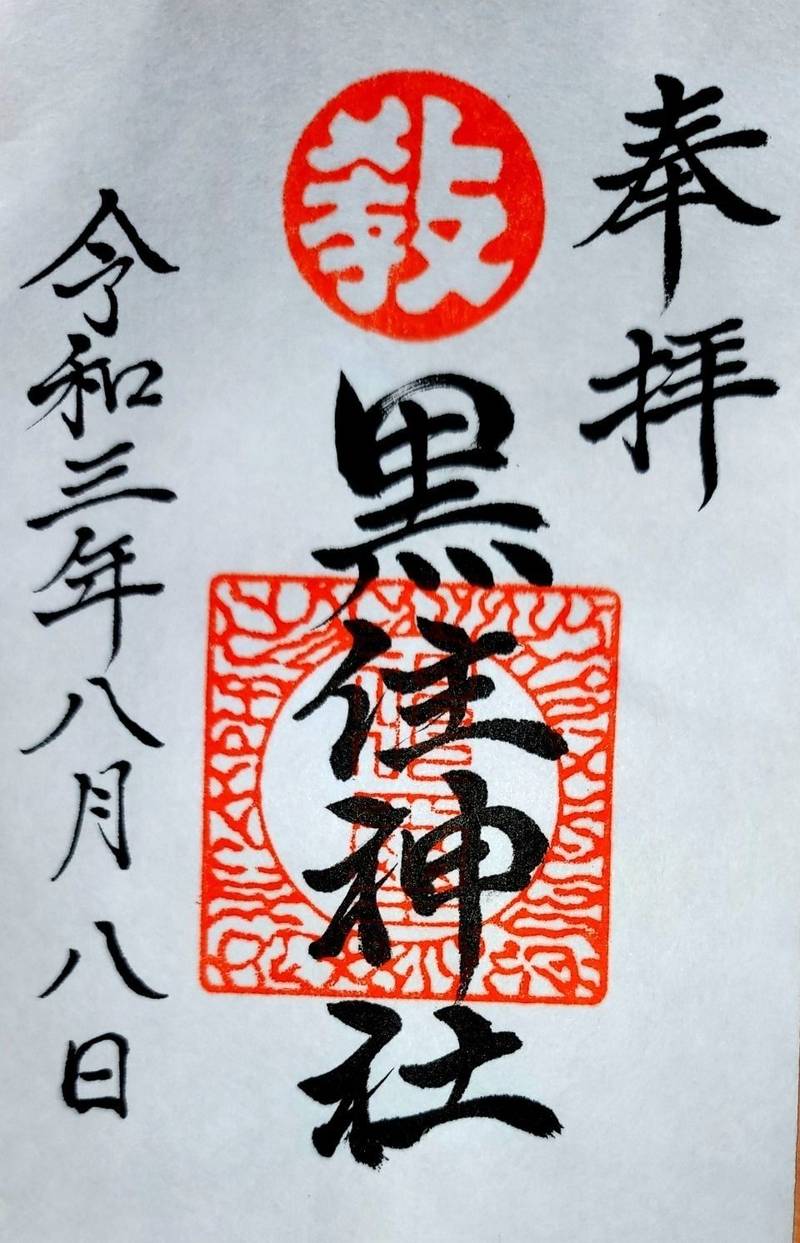 奉拝
教
黒住神社
令和三年八月八日